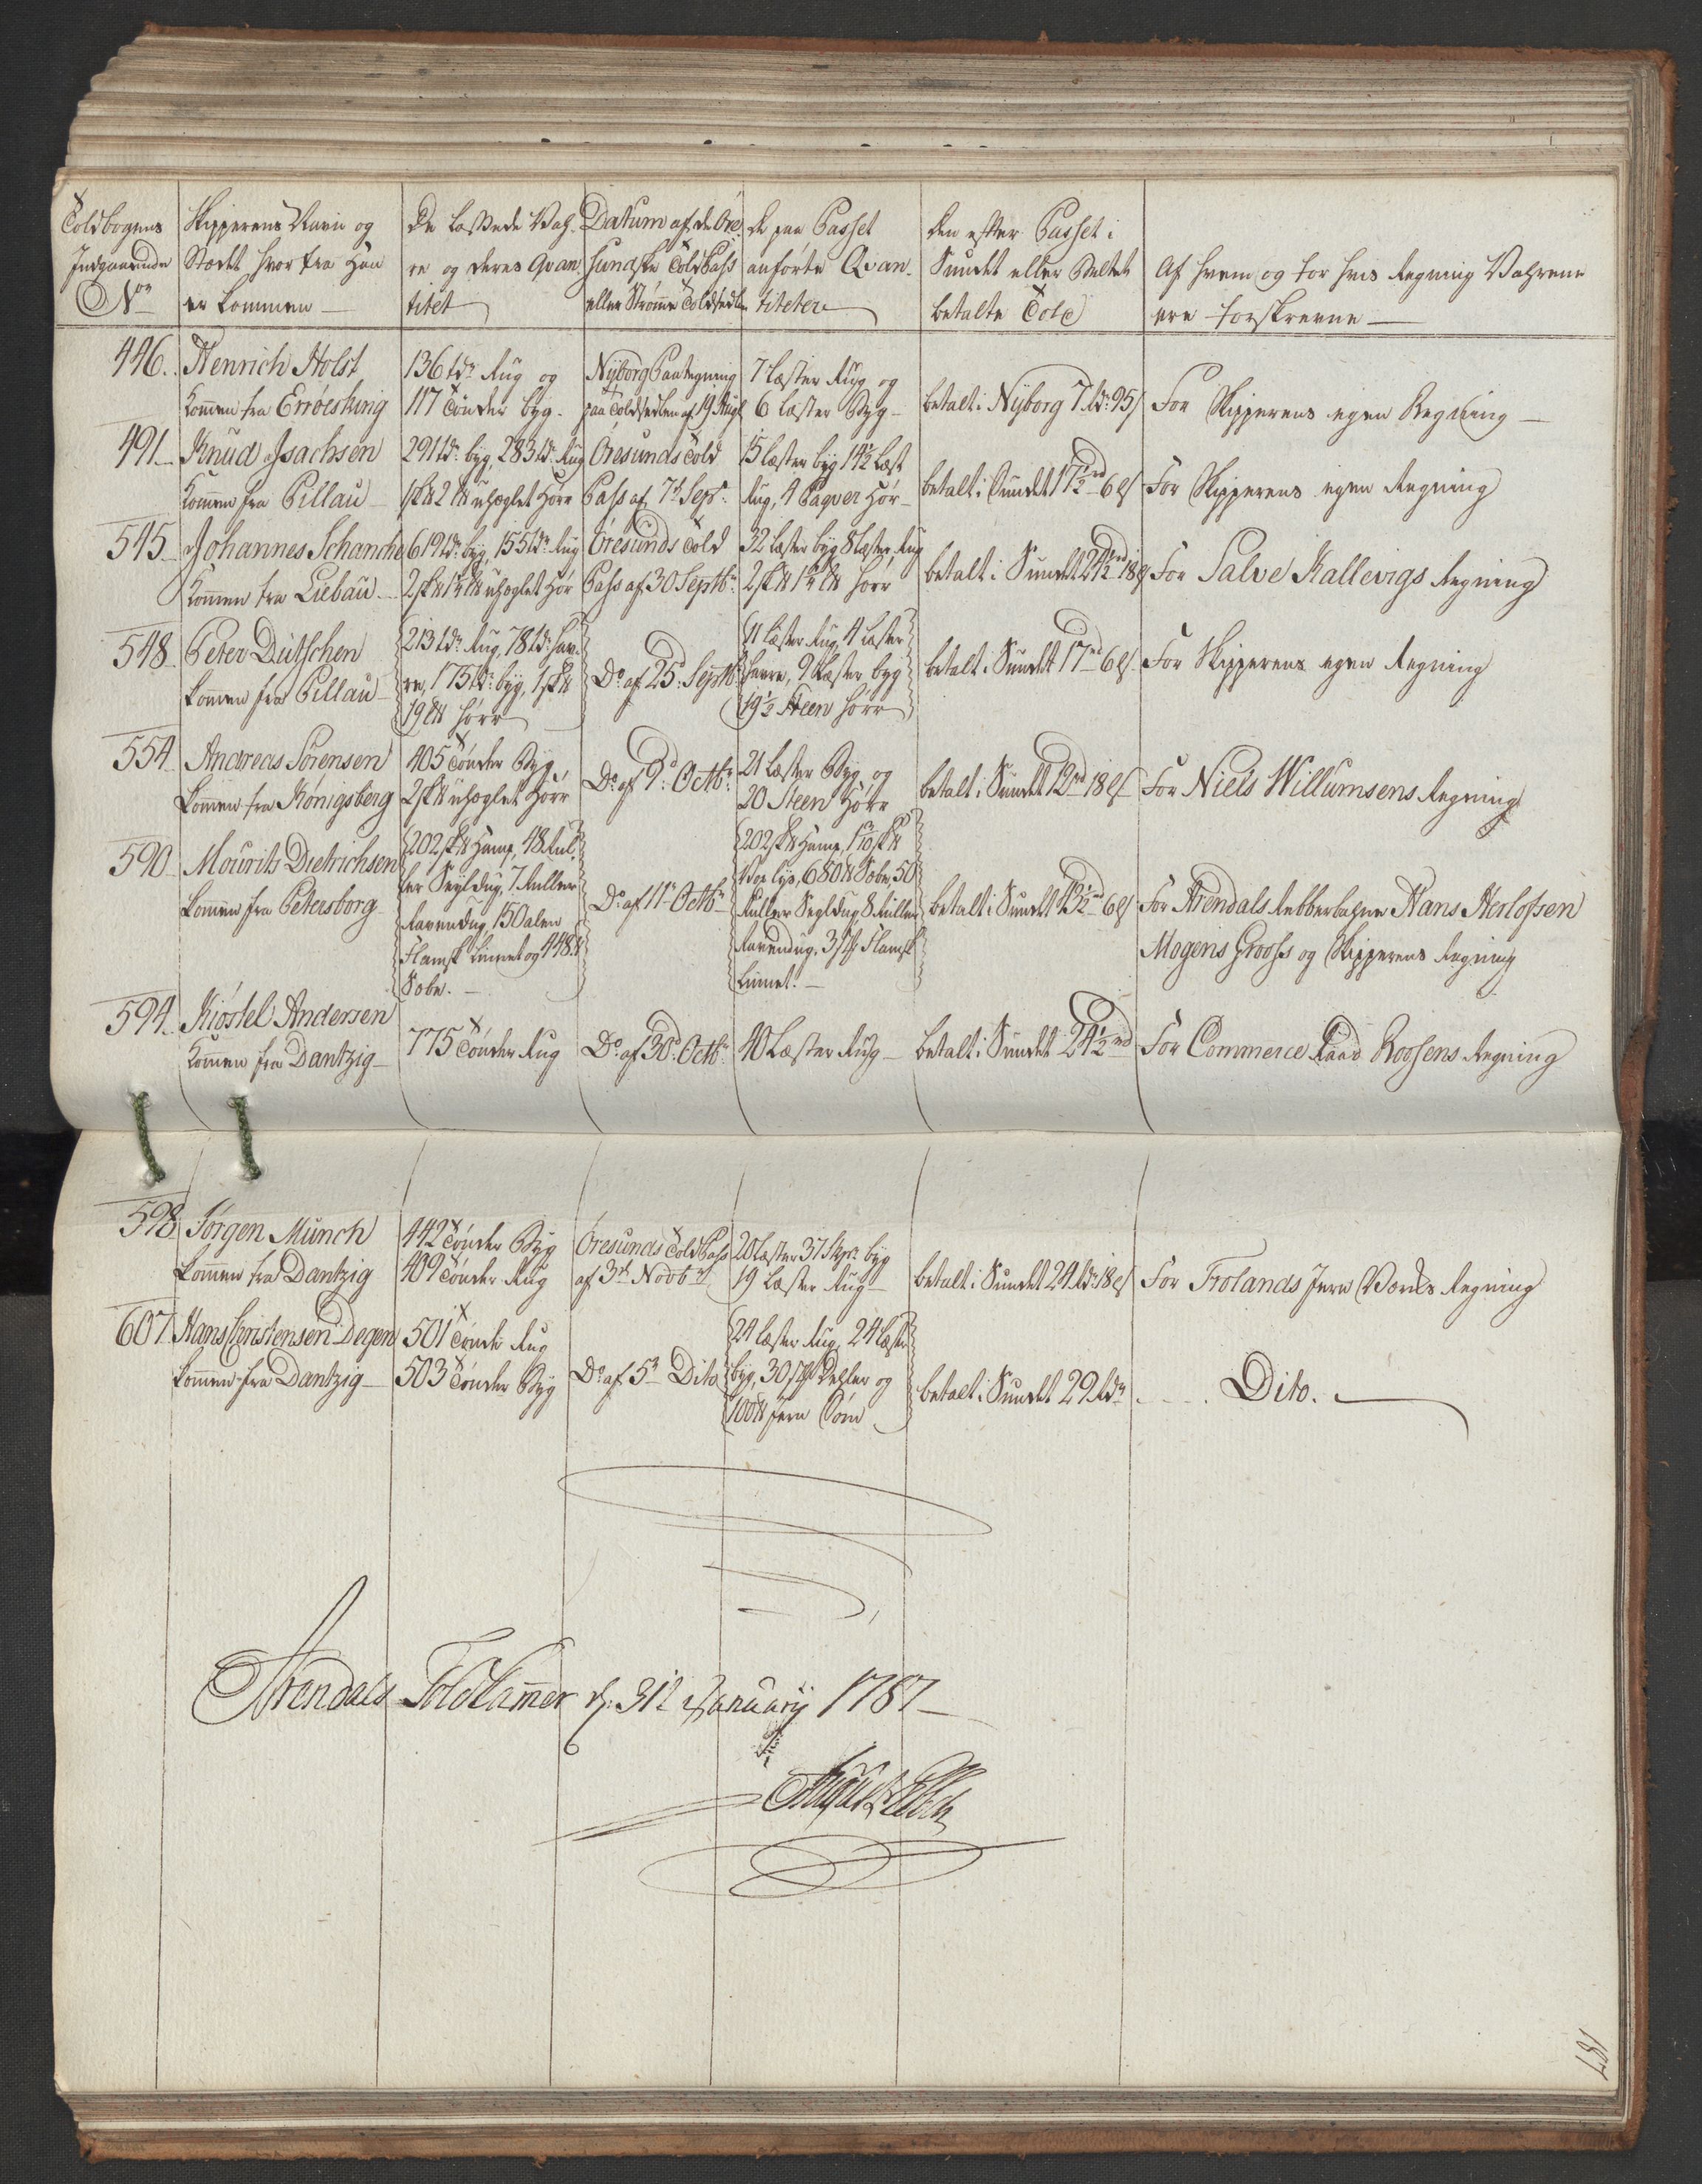 Toldbogens
Indgaaende
No
Skipperens Navn og
Stædet hvor fra Han
er kommen
De lossede Vah-
re og deres Qvan
titet
Datum af de Øre-
sundske ToldPass
eller Strømme Toldsedler
De paa Passet
anførte Qvan-
titeter
Den efter Passet i
Sundet eller Beltet
betalte Told
Af hvem og for hvis Regning Vahrene
ere forskrevne
446. Henrich Holst
kommen fra Erröeskiøing
136 tdr Rug og
117 Tönder byg.
Nyborg Paategning
paa Toldsedlen af 19 Augt
7 Læster Rug og
6 Læster Byg
betalt i Nyborg 7 rdr 95 s
For Skipperens egen Regning
491 Knud Isachsen
kommen fra Pillau
291 td: byg, 283 td: Rug
1 s℔ 2 l℔ uheglet Hör
Öresunds Told
Pass af 7d Sept:
15 læster byg 14½ Læst
Rug, 4 Paqver Hör
betalt i Sundet 17½ rd 6 s
For Skipperens egen Regning
545 Johannes Schanche
kommen fra Liebau
619 td: byg, 155 tdr Rug
2 s℔ 1½ l℔ uheglet Hör
Öresunds Told
Pass af 30 Septbr:
32 læster byg 8 læster Rug
2 s℔ 1½ l℔ hörr
betalt i Sundet 24½ rd 18 s
For Salve Kallevigs Regning
548 Peter Dutschen
kommen fra Pillau
213 tdr Rug, 78 td: hav-
re, 175 td: byg, 1 s℔
19 l℔ hörr
Do af 25: Septbr
11 læster Rug, 4 læster
havre, 9 læster byg
19½ Steen hörr
betalt i Sundet 17 rd 6 s
For Skipperens egen Regning
554 Andreas Sörensen
kommen fra Königsberg
405 Tönder Byg
2 s℔ uheglet Hörr
Do af 9: Octbr:
21 Læster Byg og
20 Steen Hörr
betalt i Sundet 12 rd 18 s
For Niels Willumsens Regning
590 Mourits Dietrichsen
kommen fra Petersborg
202 s℔ Hamp, 48 Rul-
ler Seyldug, 7 Ruller
Ravendug, 150 alen
Flamsk Linnet og 448 ℔
Sæbe.
Do af 11 Octbr
202 s℔ Hamp,
lys, 680 ℔ Sæbe 50
Ruller Segldug 8 Ruller
Ravendug, 3 st Flamsk
Linnet.
betalt i Sundet 6 s
For Arendals Rebberbahne Hans Herlofsen
Mogens Grooss og Skipperens Regning
594. Kiöstel Andersen
kommen fra Dantzig
775 Tönder Rug
Do af 30: Octbr:
40 Læster Rug
betalt i Sundet 24½ rd
For Commerce Raad Roosens Regning
598 Jörgen Munch
kommen fra Dantzig
442 Tönder Byg
409 Tönder Rug
Öresunds Told Pass
af 3d Novbr
20 læster 37 byg
19 Læster Rug
betalt i Sundet 24 rdr 18 s
For Frolands Jern Værks Regning
607 Hans Christensen Degen
kommen fra Dantzig
501 Tönder Rug
503 Tönder Byg
Do af 5 Dito
24 læster Rug, 24 læster
byg, 30 st Deeler og
100 ℔ Jern Söm
betalt i Sundet 29 rdr
Dito.
Arendals Toldkammer d: 31t January 1787
187